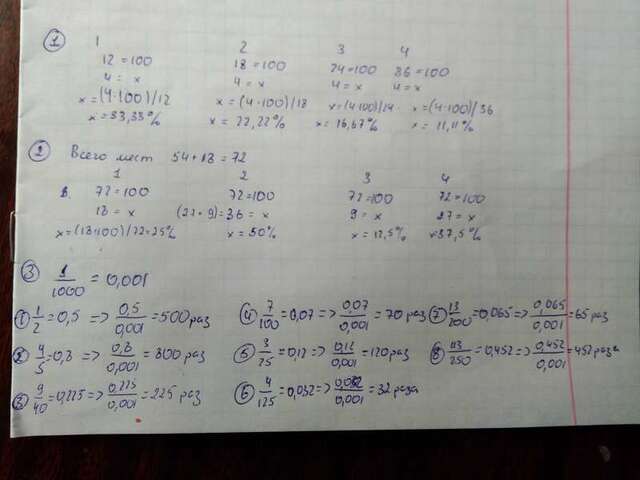 ① 1 2 3 4
12 = 100 18 = 100 24 = 100 36 = 100
4 = x 4 = x 4 = x 4 = x
x = (4·100)/12 x = (4·100)/18 x = (4·100)/24 x = (4·100)/36
x = 33,33% x = 22,22% x = 16,67% x = 11,11%
② Всего мест 54+18 = 72
1 2 3 4
в. 72 = 100 72 = 100 72 = 100 72 = 100
18 = x (27+9) = 36 = x 9 = x 27 = x
x = (18·100)/72 = 25% x = 50% x = 12,5% x = 37,5%
③ 1/1000 = 0,001
① 1/2 = 0,5 => 0,5/0,001 = 500 раз ④ 7/100 = 0,07 => 0,07/0,001 = 70 раз ⑦ 13/200 = 0,065 => 0,065/0,001 = 65 раз
② 4/5 = 0,8 => 0,8/0,001 = 800 раз ⑤ 3/25 = 0,12 => 0,12/0,001 = 120 раз ⑧ 113/250 = 0,452 => 0,452/0,001 = 452 раза
③ 9/40 = 0,225 => 0,225/0,001 = 225 раз ⑥ 4/125 = 0,032 => 0,032/0,001 = 32 раза